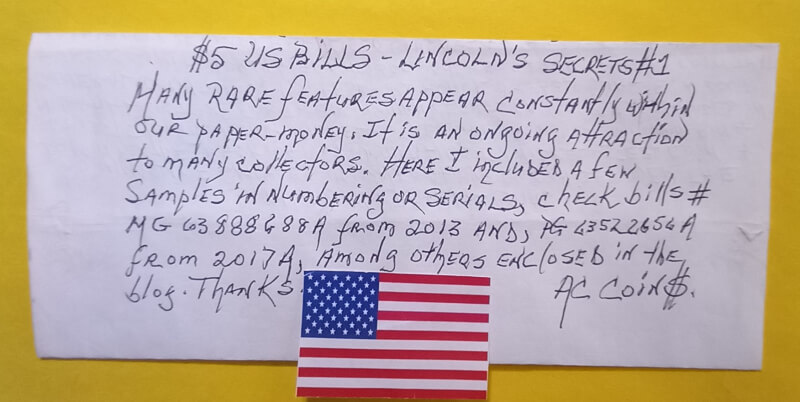 $5 US BILLS - LINCOLN'S SECRETS #1
MANY RARE FEATURES APPEAR CONSTANTLY WITHIN
OUR PAPER-MONEY. IT IS AN ONGOING ATTRACTION
TO MANY COLLECTORS. HERE I INCLUDED A FEW
SAMPLES IN NUMBERING OR SERIALS, CHECK BILLS #
MG from 2013 AND,
FROM 2017A, AMONG OTHERS ENCLOSED IN THE
blog. THANKS. AC COIN$.